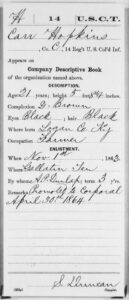 H 14 U.S.C.T.
Carr Hopkins
Co. C, 14 Reg't U. S. Col'd Inf.
Appears on
Company Descriptive Book
of the organization named above.
DESCRIPTION.
Age 21 years; height feet inches.
Complexion Brown
Eyes Black; hair Black
Where born Logan Co Ky
Occupation Farmer
ENLISTMENT.
When Nov 1st, 1863.
Where Gallatin Ten
By term 3 y'rs.
Remarks: Promoted to Corporal
April 30th 1864
S Duncan